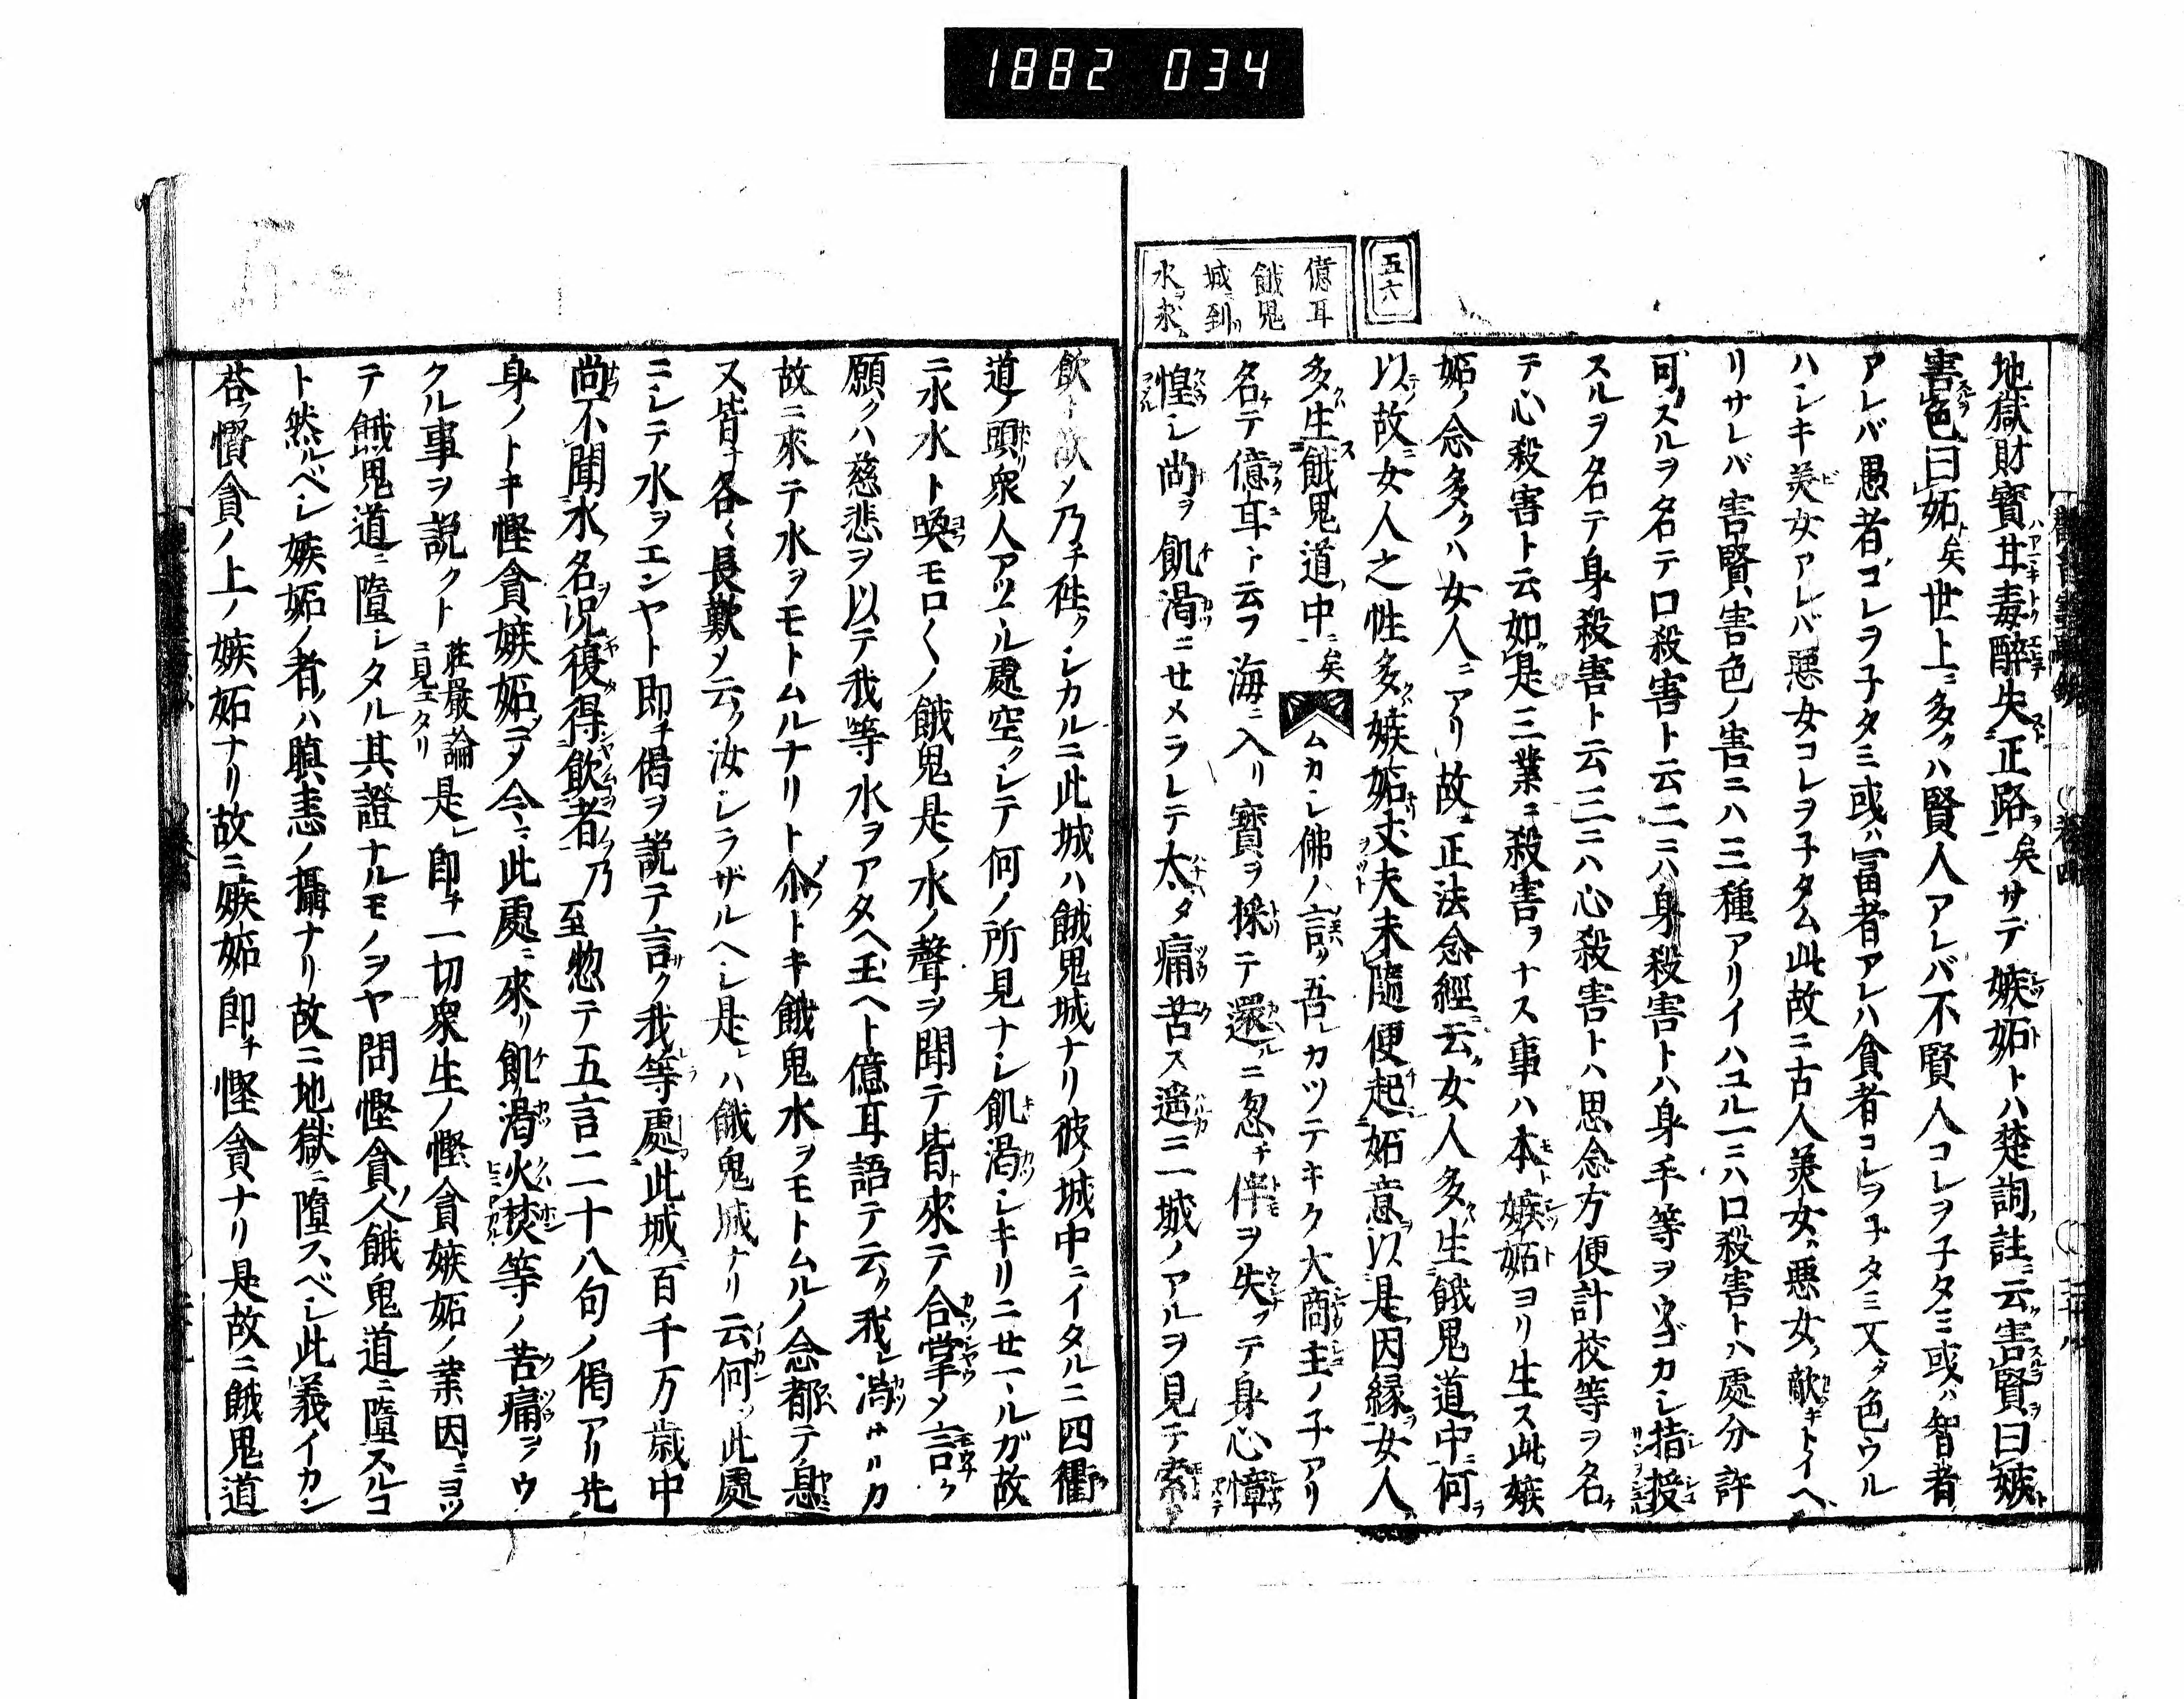 1882 034
五六
億耳
餓鬼
城到
水求
地獄財寳甘毒醉失正路矣サテ嫉妬トハ楚詞註云害賢曰嫉
害色曰妬矣世上ニ多クハ賢人アレバ不賢人コレヲ子タミ或ハ智者
アレバ愚者コレヲ子タミ或ハ冨者アレハ貪者コレヲ子タミ又タ色ウル
ハシキ美女アレバ惡女コレヲ子タム此故ニ古人美女ハ悪女ノ敵キトイヘ
リサレバ害賢害色ノ害ニハ三種アリイハユル一ニハ口殺害トハ處分許
可スルヲ名テ口殺害ト云二ニハ身殺害トハ身手等ヲウゴカシ指授
スルヲ名テ身殺害ト云三ニハ心殺害トハ思念方便計校等ヲ名
テ心殺害ト云如是三業ニ殺害ヲナス事ハ本ト嫉妬ヨリ生ス此嫉
妬ノ念多クハ女人ニアリ故ニ正法念經云女人多生餓鬼道中何
以故女人之性多嫉妬丈夫未隨便起妬意以是因縁女人
多生餓鬼道中矣ムカシ佛ノ言ク吾レカツテキク大商主ノ子アリ
名テ億耳ト云フ海ニ入リ寳ヲ採テ還ルニ忽チ伴ヲ失ツテ身心憧
惶シ尚ヲ飢渇ニセメラレテ太タ痛苦ス遥ニ一城ノアルヲ見テ索
飲ト欲メ乃チ往クシカルニ此城ハ餓鬼城ナリ彼ノ城中ニイタルニ四衢
道ノ頭衆人アツマル處空クシテ何ノ所見ナシ飢渇シキリニせマルガ故
ニ水水ト喚モロ〱ノ餓鬼是ノ水ノ聲ヲ聞テ皆來テ合掌メ言ク
願クハ慈悲ヲ以テ我等水ヲアタヘ玉ヘト億耳語テ云ク我レ渇サルカ
故ニ來テ水ヲモトムルナリト尒トキ餓鬼水ヲモトムルノ念都テ息
又皆ナ各〱長歎メ云ク汝シラザルヘシ是レハ餓鬼城ナリ云何ソ此處
ニシテ水ヲエンヤト即チ偈ヲ説テ言ク我等處此城百千万歳中
尚不聞水名况復得飲者乃至惣テ五言二十八句ノ偈アリ先
身ノトキ慳貪嫉妬ニメ今ニ此處ニ來リ飢渇火焚等ノ苦痛ヲウ
クル事ヲ説クト莊嚴論ニ見エタリ是レ即チ一切衆生ノ慳貪嫉妬ノ業因ニヨツ
テ餓鬼道ニ墮シタル其證ナルモノヲヤ問慳貪人餓鬼道ニ墮スルコ
ト然ルベシ嫉妬ノ者ハ瞋恚ノ攝ナリ故ニ地獄ニ墮スベシ此義イカン
荅慳貪ノ上ノ嫉妬ナリ故ニ嫉妬即チ慳貪ナリ是故ニ餓鬼道